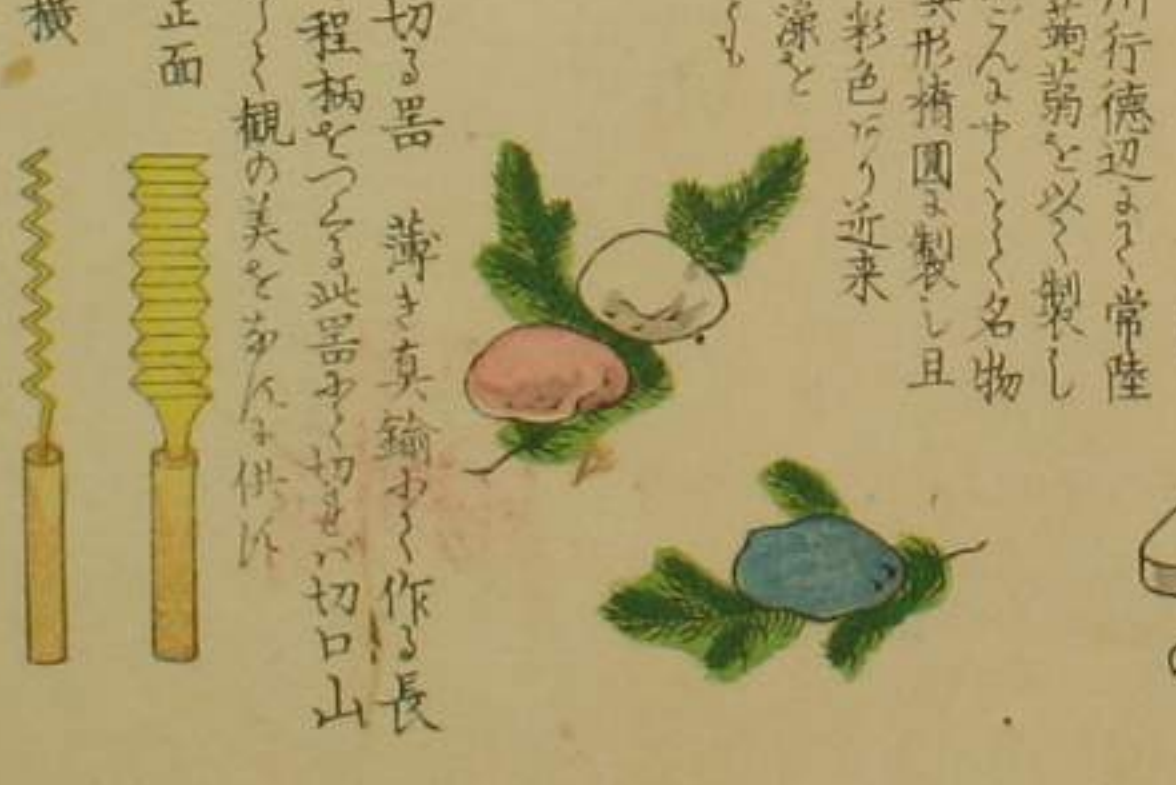 川行徳辺にて常陸
蒟蒻を以て製し
ごんにやくとて名物
其形橢圓に製し且
彩色アリ近来
藻を
も
切る器 薄き真鍮にて作る長
程柄をつくる此器にて切れバ切口山
して観の美を
に供ス
正面
横